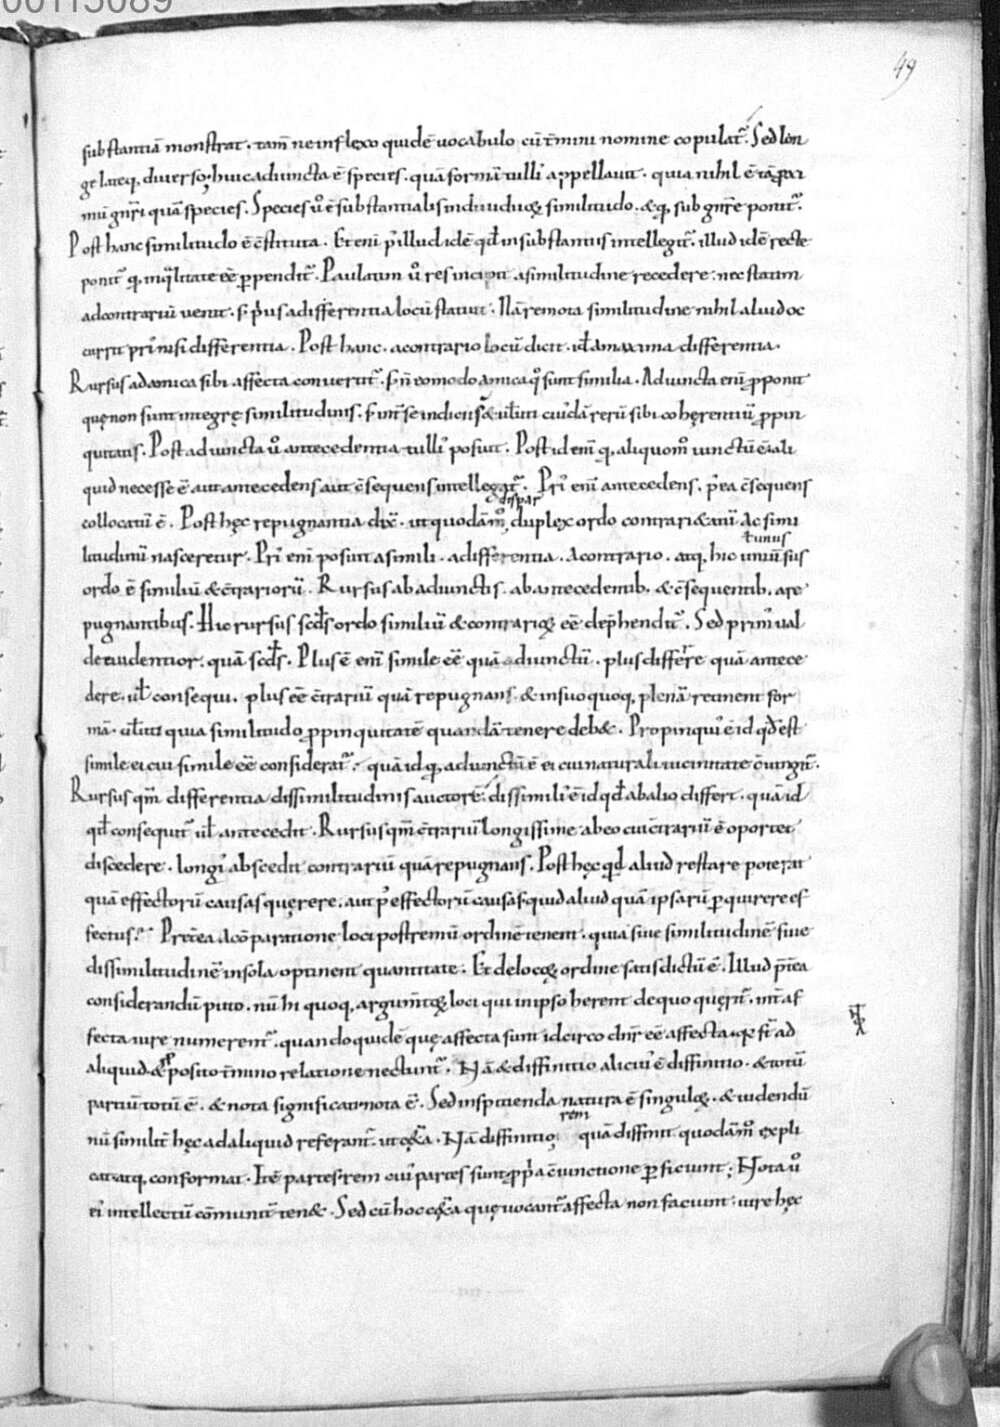 00115089
49
substantiā monstrat. tam̄ ne inflexo quidē uocabulo cū t̄mini nomine copulat̄. Sed lon
ge lateq, diuerso; huic adiuncta ē species. quā formā tulli' appellauit. quia nihil ē tā par
mū gn̄ri quā species. Species ū ē substantialis indiuiduoꝝ similitudo. & q, sub gn̄re ponit̄.
Post hanc similitudo ē c̄stituta. Et enī p̄ illud idē qđ in substantiis intellegit̄. illud idē recte
ponit̄ q, in q̄litate eē p̄pendit̄. Paulatim ū res incipit a similitudine recedere: nec statim
ad contrariū uenit. s; p̄us a differentia locū statuit. Nā remota similitudine nihil aliud oc
currit pri' nisi differentia. Post hanc. a contrario locū dicit. ut a maxima differentia.
Rursus ad amica sibi affecta conuertit̄. s; n̄ eo modo amica q̄ sunt similia. Adiuncta enī p̄ponit
quę non sunt integrę similitudinis. s; int̄ se indicius & ueluti cui'dā rerū sibi cohęrentiū p̄pin
quitatis. Post adiuncta ū antecedentia tulli' posuit. Post id enī q, aliquom̄ iunctū ē ali
quid necesse ē aut antecedens aut c̄sequens intellegat̄. Pri' enī antecedens. p̄ea c̄sequens
dispar
collocatū ē. Post hęc repugnantia dix̄. ut quodām̄ duplex ordo contrari& atū Ac simi
t unus
litudinū nasceretur. Pri' enī posuit a simili. a differentia. A contrario. atq, hic unius
ordo ē similiū & c̄trariorū. Rursus ab adiunctis. ab antecedentib, & c̄sequentib, a re
pugnantibus. Hic rursus scđs ordo similiū & contrarioꝝ eē dep̄hendit̄. Sed prim' ual
de euidentior. quā scđs. Plus ē enī simile eē quā adiunctū. plus differre quā antece
dere. ut consequi. plus eē c̄trariū quā repugnans. & in suo quoq, plenā retinent for
mā. ueluti quia similitudo p̄pinquitatē quandā tenere deb&. Propinqui' ē id qđ est
simile ei cui simile eē considerat̄. quā id q, adiunctū ē ei cui naturali uicinitate c̄iungit̄.
Rursus qm̄ differentia dissimilitudinis auctor ē. dissimili' ē id qđ ab alio differt. quā id
qđ consequit̄ ut antecedit. Rursus qm̄ c̄trariū longissime ab eo cui c̄trariū ē oportet
discedere. longi' abscedit contrariū quā repugnans. Post hęc qđ aliud restare poterat
quā effectorū causas quęrere. aut p̄ effectorū causas quid aliud quā ipsarū p̄quirere ef
fectus? Pret̄ea a cōparatione loci postremū ordinē tenent. quia siue similitudinē siue
dissimilitudinē in sola optinent quantitate. Et de locoꝝ ordine satis dictū ē. Illud p̄t̄ea
considerandū puto. nū hi quoq, argum̄toꝝ loci qui in ipso herent de quo quęrit̄. int̄ af
fecta iure numerent̄. quando quidē quę affecta sunt idcirco dn̄r eē affecta. q, s; ad
aliquid & p̄posito t̄mino relatione nectunt̄. Nā & diffinitio alicui' ē diffinitio. & totū
partiū totū ē. & nota significati nota ē. Sed inspicienda natura ē singuloꝝ. & uidendū
rem
nū similit̄ hęc ad aliquid referant̄. ut cęt̄a. Nā diffinitio quā diffinit quodām̄ expli
cat atq, conformat. Itē partes rem cui' partes sunt p̄p̄a c̄iunctione p̄ficiunt; Nota ū
ei' intellectū cōmunit̄ ten&. Sed cū hoc cęt̄a quę uocant̄ affecta non faciunt. iure hęc